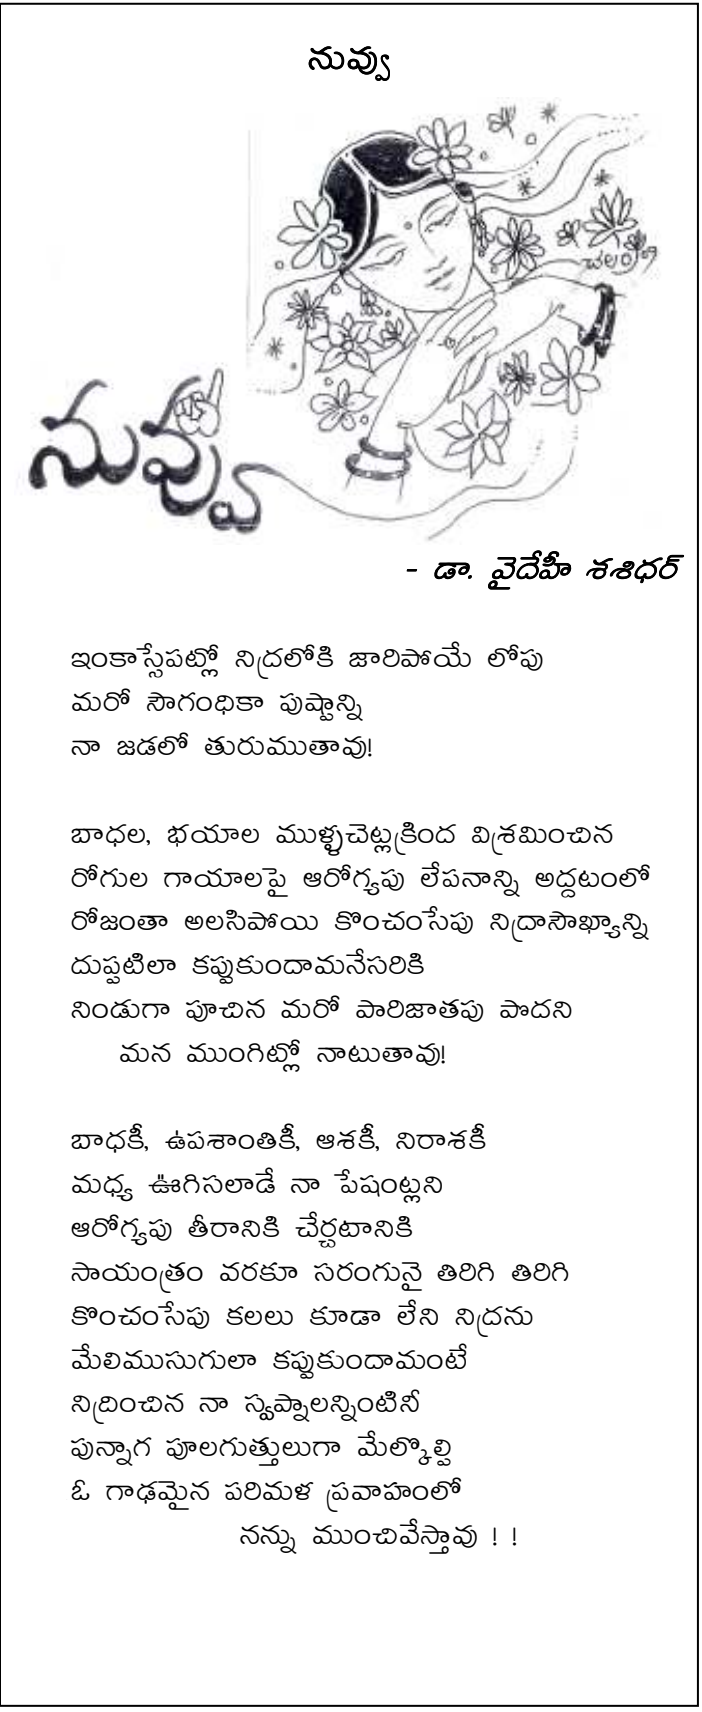 నువ్వు
చలం
నువ్వు
- డా. వైదేహీ శశిధర్
ఇంకాస్సేపట్లో నిద్రలోకి జారిపోయే లోపు
మరో సౌగంధికా పుష్పాన్ని
నా జడలో తురుముతావు!
బాధల, భయాల ముళ్ళచెట్లక్రింద విశ్రమించిన
రోగుల గాయాలపై ఆరోగ్యపు లేపనాన్ని అద్దటంలో
రోజంతా అలసిపోయి కొంచంసేపు నిద్రాసౌఖ్యాన్ని
దుప్పటిలా కప్పుకుందామనేసరికి
నిండుగా పూచిన మరో పారిజాతపు పొదని
మన ముంగిట్లో నాటుతావు!
బాధకీ, ఉపశాంతికీ, ఆశకీ, నిరాశకీ
మధ్య ఊగిసలాడే నా పేషంట్లని
ఆరోగ్యపు తీరానికి చేర్చటానికి
సాయంత్రం వరకూ సరంగునై తిరిగి తిరిగి
కొంచంసేపు కలలు కూడా లేని నిద్రను
మేలిముసుగులా కప్పుకుందామంటే
నిద్రించిన నా స్వప్నాలన్నింటినీ
పున్నాగ పూలగుత్తులుగా మేల్కొల్పి
ఓ గాఢమైన పరిమళ ప్రవాహంలో
నన్ను ముంచివేస్తావు ! !